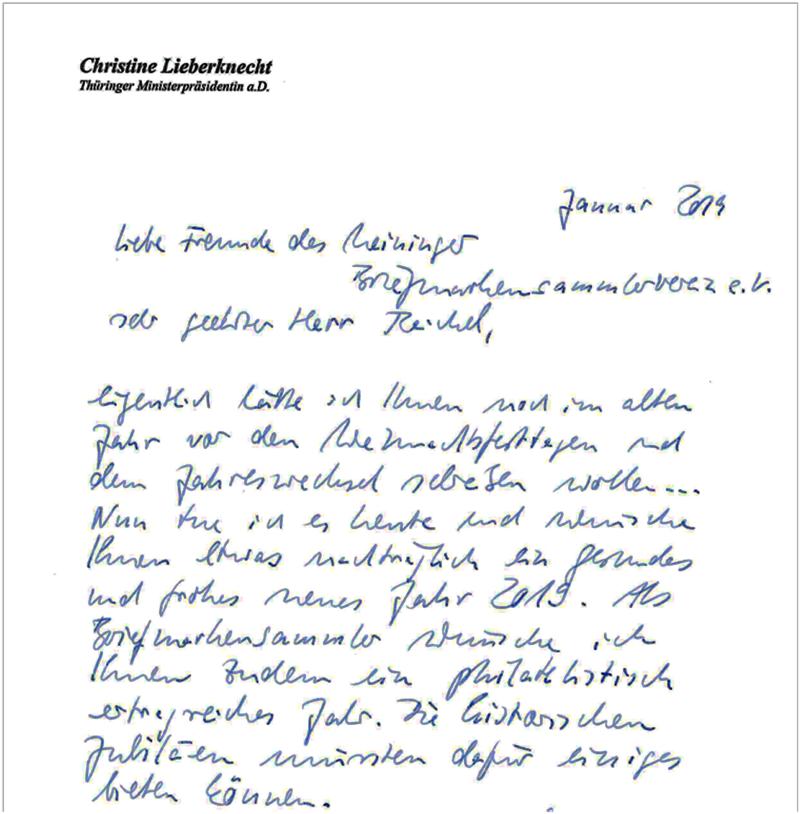 Christine Lieberknecht
Thüringer Ministerpräsidentin a.D.
Januar 2019
Liebe Freunde des Meininger
Briefmarkensammlerverein e.V.
sehr geehrter Herr Reichel,
eigentlich hätte ich Ihnen noch im alten
Jahr vor den Weihnachtsfesttagen und
dem Jahreswechsel schreiben wollen...
Nun tue ich es heute und wünsche
Ihnen etwas nachträglich ein gesundes
und frohes neues Jahr 2019. Als
Briefmarkensammler wünsche ich
Ihnen zudem ein philatelistisch
ertragreiches Jahr. Die historischen
Jubiläen müssten dafür einiges
bieten können.